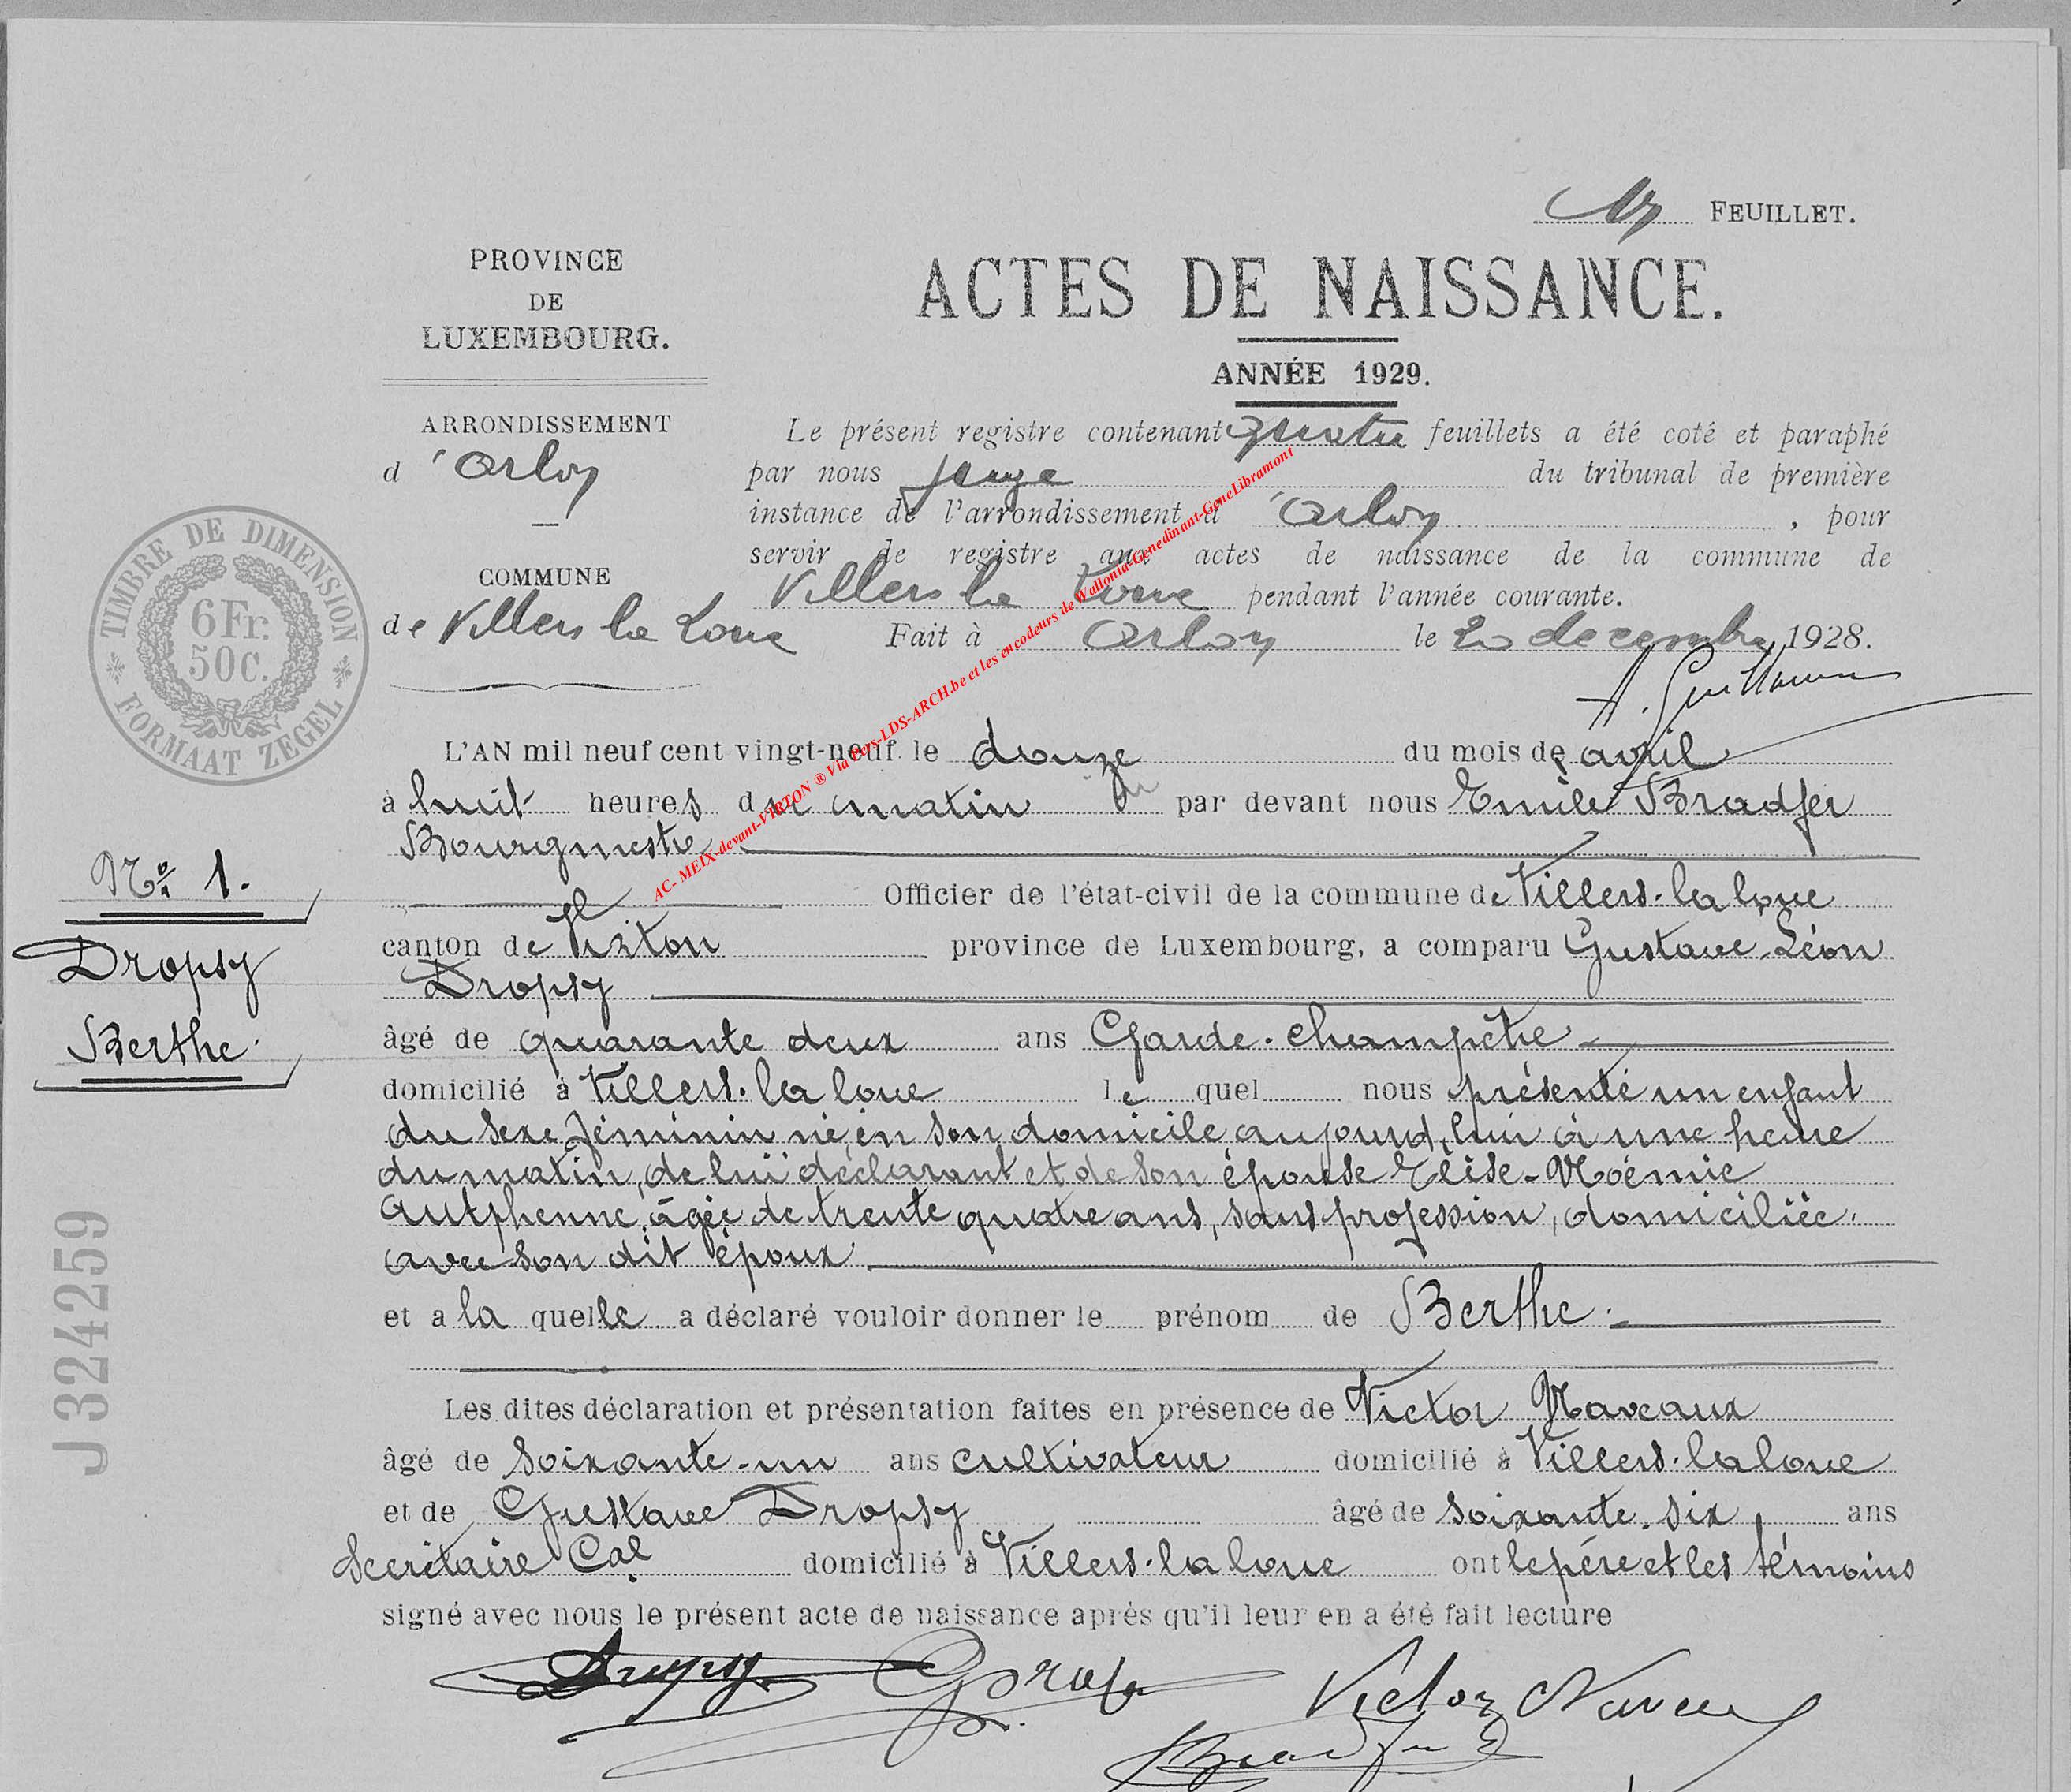 FEUILLET.
PROVINCE
DE
LUXEMBOURG.
ACTES DE NAISSANCE.
ANNÉE 1929.
ARRONDISSEMENT
d 'Arlon
COMMUNE
de Villers la Loue
Le présent registre contenant quatre feuillets a été coté et paraphé
par nous juge du tribunal de première
instance de l'arrondissement d 'Arlon, pour
servir de registre aux actes de naissance de la commune de
Villers la Loue pendant l'année courante.
Fait à Arlon le 20 decembre 1928.
TIMBRE DE DIMENSION
6 Fr.
50 C.
FORMAAT ZEGEL
AC- MEIX-devant-VIRTON ® Via Pers-LDS-ARCH.be et les encodeurs de Wallonia-Genedinant-GeneLibramont
L'AN mil neuf cent vingt-neuf le douze du mois de avril
à huit heures du matin par devant nous Emile Bradfer
Bourgmestre
Officier de l'état-civil de la commune de Villers-la loue
canton de Virton province de Luxembourg, a comparu Gustave-Léon
Dropsy
âgé de quarante deux ans Garde-champêtre
domicilié à Villers-la loue le quel nous présenté un enfant
du sexe féminin né en son domicile aujourd'hui à une heure
du matin, de lui déclarant et de son épouse Elise-Noémie
Autphenne, âgée de trente quatre ans, sans profession, domiciliée
avec son dit époux
et a la quelle a déclaré vouloir donner le prénom de Berthe.
Les dites déclaration et présentation faites en présence de Victor Naveaux
âgé de soixante-un ans cultivateur domicilié à Villers-la loue
et de Gustave Dropsy âgé de soixante-six ans
Secrétaire Cal domicilié à Villers-la loue ont le père et les témoins
signé avec nous le présent acte de naissance après qu'il leur en a été fait lecture
Nº 1.
Dropsy
Berthe.
J 324259
Dropsy
Victor